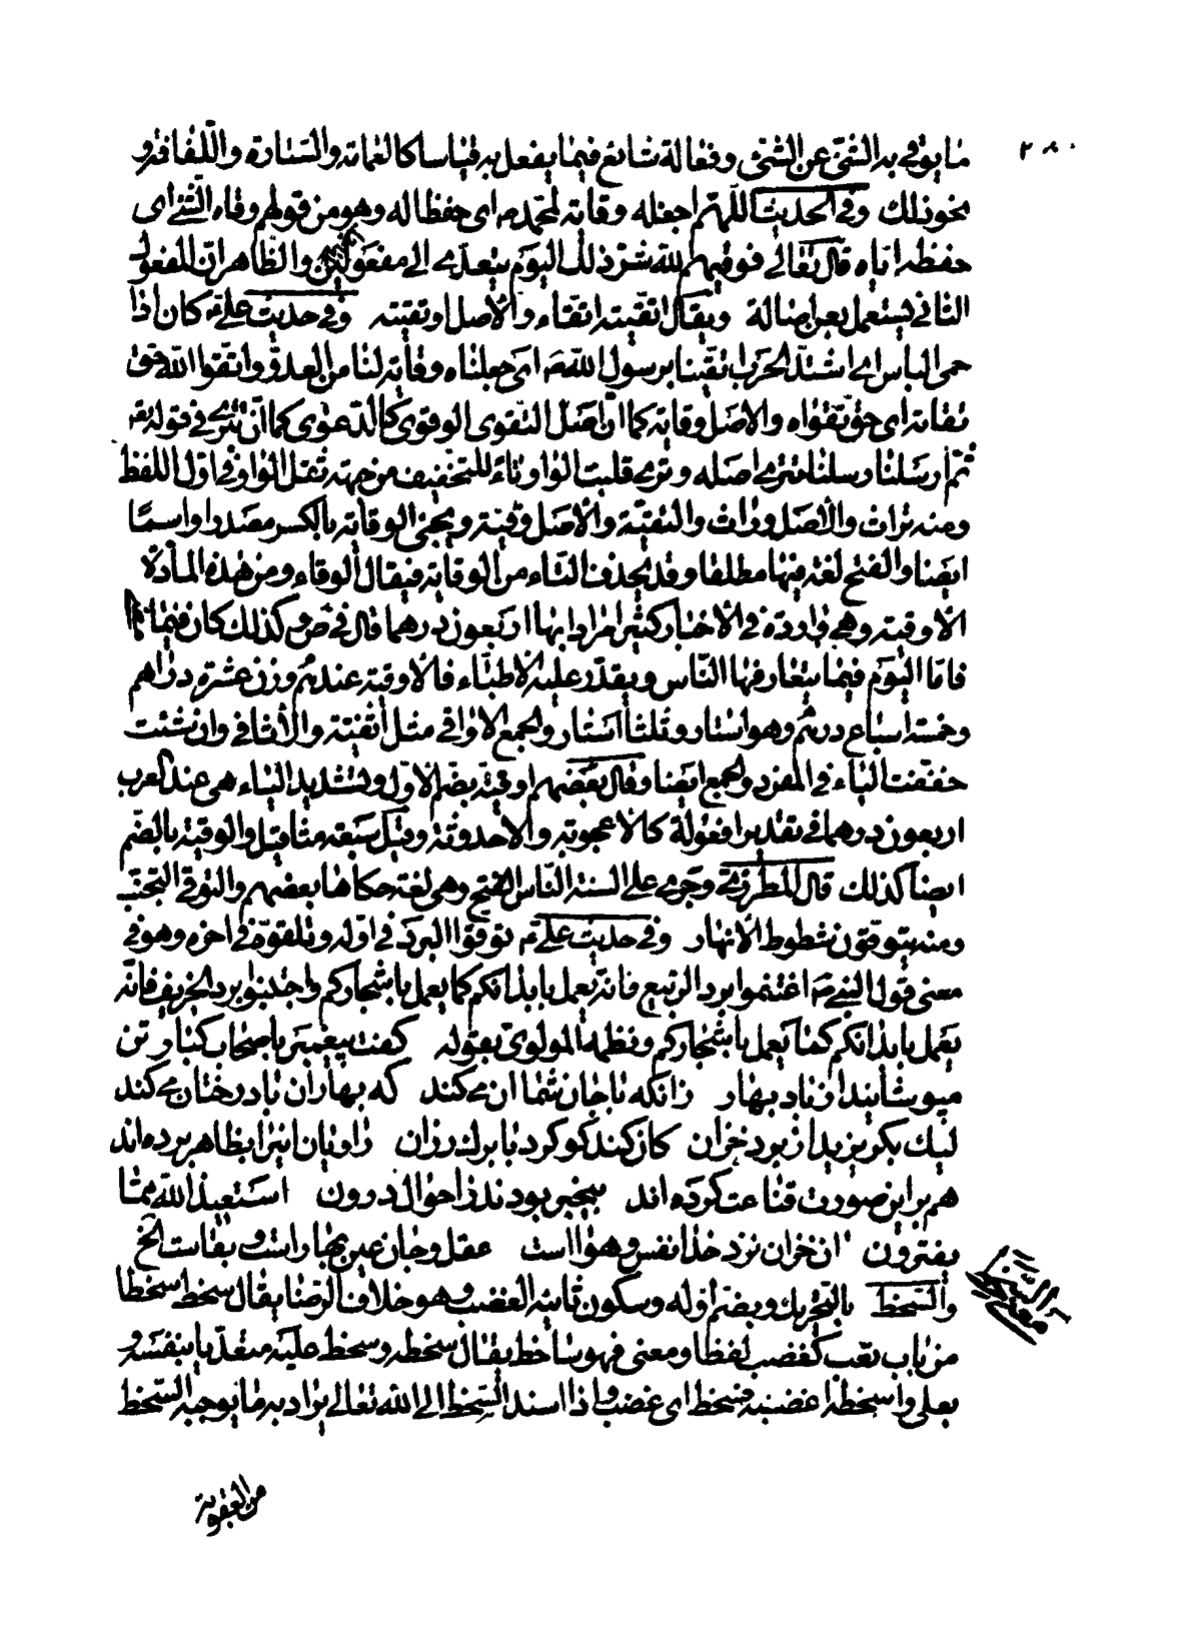 ٢٨٠
ما يوقى به الشئ عن الشئ وفعالة شائع فيما يفعل به قياسا كالعمامة والستارة واللفافة و
نحو ذلك وفي الحديث اللهم اجعله وقاية لمحمد ص اى حفظا له وهو من قولهم وقاه الشئ اى
حفظه اياه قال تعالى فوقيهم الله شر ذلك اليوم يتعدى الى مفعولين والظاهر ان المفعول
الثانى يستعمل بعن اصالة ويقال اتقيته اتقاء والاصل اوتقيته وفي حديث على ع كان اذا
حمى الباس اى اشتد الحرب اتقينا برسول الله ص اى جعلناه وقاية لنا من العدو واتقوا الله حق
تقاته اى حق تقواه والاصل وقاية كما ان اصل التقوى الوقوى كالدعوى كما ان تترى في قوله تع
ثم ارسلنا رسلنا تترى اصله وترى قلبت الواو تاء للتخفيف من جهة ثقل الواو في اول اللفظ
ومنه تراث والاصل وراث والتقية والاصل وقية ويجئ الوقاية بالكسر مصدرا واسما
ايضا والفتح لغة فيها مطلقا وقد يحذف التاء من الوقاية فيقال الوقاء ومن هذه المادة
الاوقية وهي واردة في الاخبار كثيرا مرادا بها اربعون درهما قال في ص وكذلك كان فيما مضى
فاما اليوم فيما يتعارفها الناس ويقدر عليه الاطباء فالاوقية عندهم وزن عشرة دراهم
وخمسة اسباع درهم وهو استار وثلثا استار والجمع الاواقى مثل اثفية والاثافى وان شئت
خففت الياء في المفرد والجمع ايضا وقال بعضهم اوقية بضم الاول وتشديد الياء هى عند العرب
اربعون درهما في تقدير افعولة كالاعجوبة والاحدوثة وقيل سبعة مثاقيل والوقية بالضم
ايضا كذلك قال المطرزى وجرى على السنة الناس الفتح وهى لغة حكاها بعضهم والتوقى التجنب
ومنه يتوقون شطوط الانهار وفي حديث على ع توقوا البرد في اوله وتلقوه في اخره وهو في
معنى قول النبى ص اغتنموا برد الربيع فانه يعمل بابدانكم كما يعمل باشجاركم واجتنبوا برد الخريف فانه
يعمل بابدانكم كما يعمل باشجاركم ونظمه المولوى بقوله گفت پيغمبر باصحاب كبار تن
مپوشانيد از باد بهار زانكه با جان شما ان مى كند كه بهاران با درختان مى كند
ليك بگريزيد از برد خزان كان كند كو كرد با برگ رزان راويان اينرا بظاهر برده اند
هم بر اين صورت قناعت كرده اند بيخبر بودند از احوال درون استعيذ الله مما
يفترون ان خزان نزد خدا نفس و هوا است عقل و جان عين بهار است و بقاست الخ
والسخط بالتحريك وبضم اوله وسكون ثانيه الغضب وهو خلاف الرضا يقال سخط سخطا
من باب تعب كغضب لفظا ومعنى فهو ساخط يقال سخطه وسخط عليه متعديا بنفسه و
بعلى واسخطه اغضبه فسخط اى غضب واذا اسند السخط الى الله تعالى يراد به ما يوجبه السخط
من العقوبة
السخط
معنى